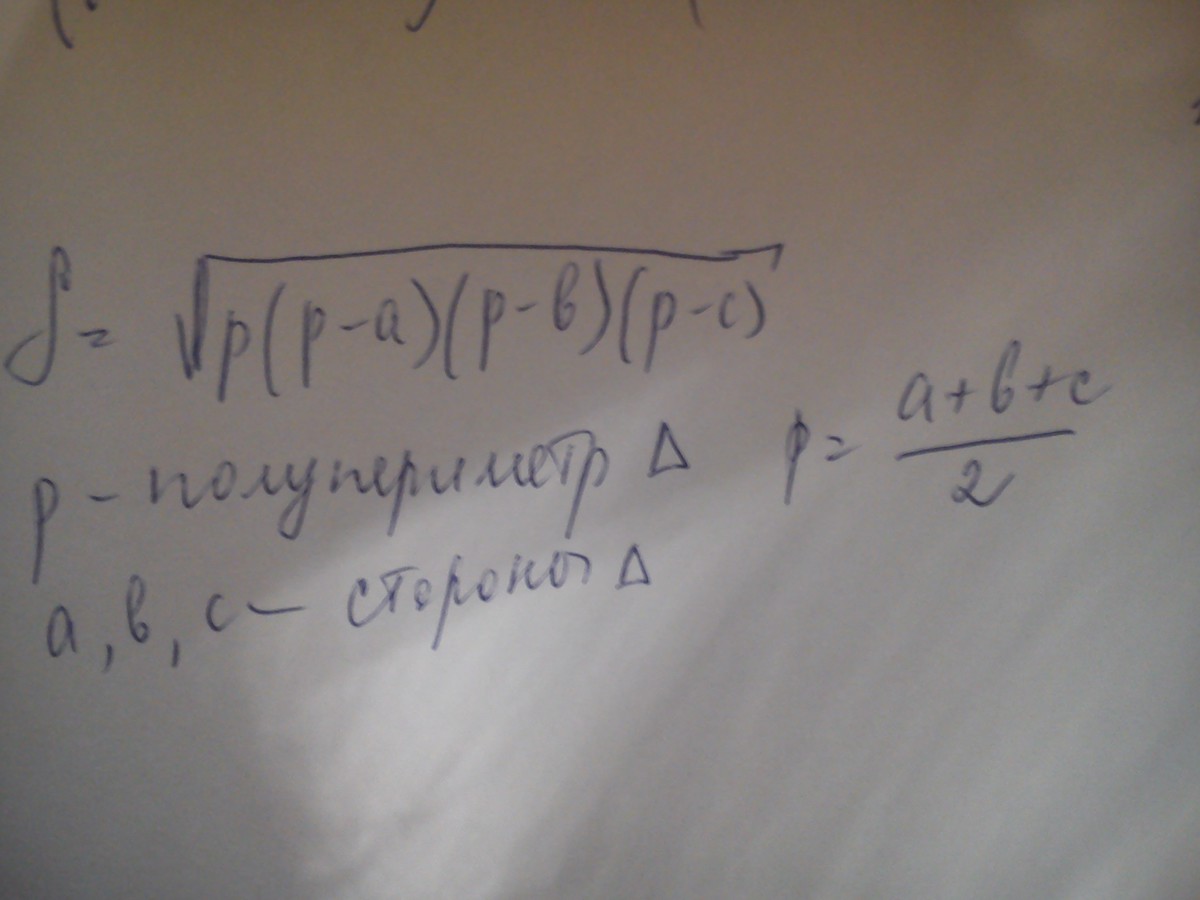 S = √p(p-a)(p-в)(p-c)
p - полупериметр Δ p = a+в+c / 2
a, в, c - стороны Δ